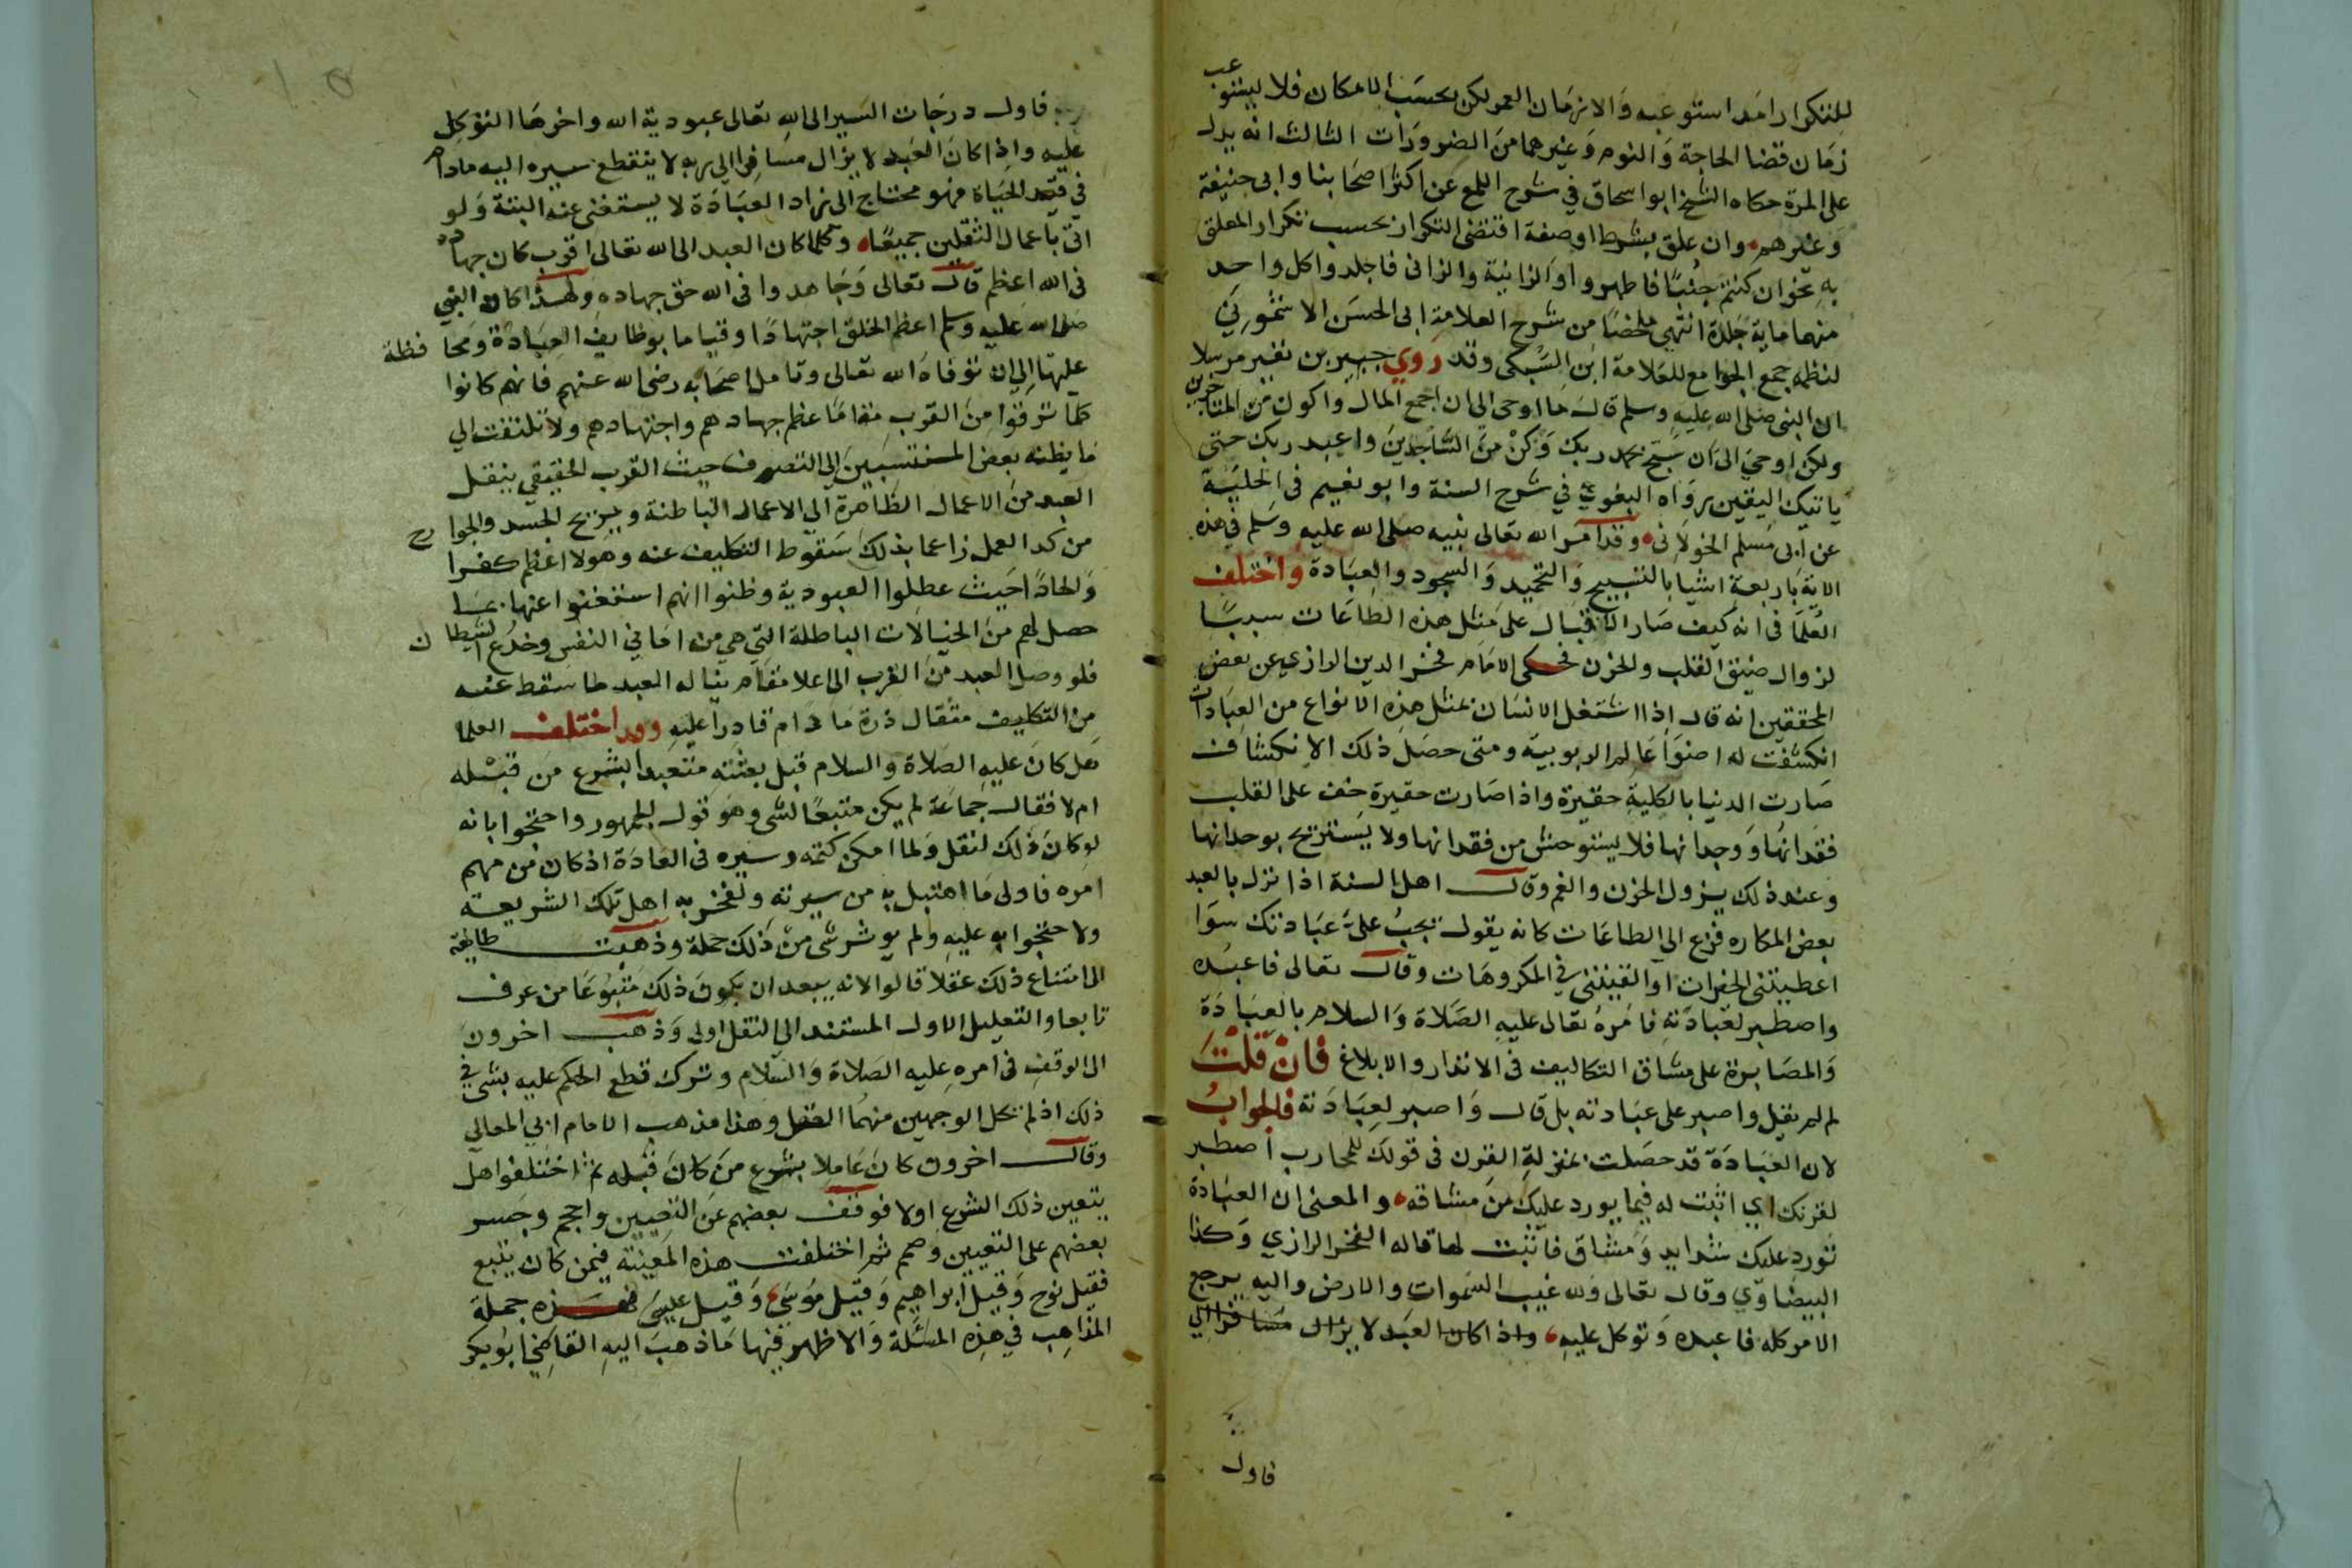 للتكرار امد استوعبه والا زمان العمر لكن بحسب الامكان فلا يستوعب
زمان قضا الحاجة والنوم وغيرهما من الضرورات الثالث انه يدل
على المرة حكاه الشيخ ابو اسحاق في شرح اللمع عن اكثر اصحابنا وابى حنيفة
وغيرهم وان علق بشرط او صفة اقتضى التكرار بحسب تكرار المعلق
به نحو ان كنتم جنبًا فاطهروا والزانية والزانى فاجلدوا كل واحد
منهما ماية جلدة انتهى ملخصًا من شرح العلامة ابى الحسن الاشموني
لنظمه جمع الجوامع للعلامة ابن السبكى وقد روي جبير بن نفير مرسلا
ان النبى صلى الله عليه وسلم قال ما اوحى الى ان اجمع المال واكون من المتاجرين
ولكن اوحي الى ان سبح بحمد ربك وكن من الساجدين واعبد ربك حتى
ياتيك اليقين رواه البغوي في شرح السنة وابو نعيم فى الحلية
عن ابى مسلم الخولانى وقد امر الله تعالى نبيه صلى الله عليه وسلم في هذه
الاية باربعة اشيا بالتسبيح والتحميد والسجود والعبادة واختلف
العلما فى انه كيف صار الاقبال على مثل هذه الطاعات سببًا
لزوال ضيق القلب والحزن فحكى الامام فخر الدين الرازي عن بعض
المحققين انه قال اذا اشتغل الانسان بمثل هذه الانواع من العبادات
انكشفت له اضوا عالم الربوبية ومتى حصل ذلك الانكشاف
صارت الدنيا بالكلية حقيرة واذا صارت حقيرة خف على القلب
فقدانها ووجدانها فلا يستوحش من فقدانها ولا يستريح بوجدانها
وعند ذلك يزول الحزن والغم وقال اهل السنة اذا نزل بالعبد
بعض المكاره فزع الى الطاعات كانه يقول تجب علىّ عبادتك سوا
اعطيتنى الخيرات او القيتنى في المكروهات وقال تعالى فاعبده
واصطبر لعبادته فامره تعالى عليه الصلاة والسلام بالعبادة
والمصابرة على مشاق التكاليف فى الانذار والابلاغ فان قلت
لم لم يقل واصبر على عبادته بل قال واصبر لعبادته فالجواب
لان العبادة قد حصلت بمنزلة القرن فى قولك للمحارب اصطبر
لقرنك اي اثبت له فيما يورد عليك من مشاقه والمعنى ان العبادة
تورد عليك شدايد ومشاق فاثبت لها قاله الفخر الرازي وكذا
البيضاوي وقال تعالى ولله غيب السموات والارض واليه يرجع
الامر كله فاعبده وتوكل عليه واذا كان العبد لا يزال مسافرا الي
فاول
فاول درجات السير الى الله تعالى عبودية الله واخرها التوكل
عليه واذا كان العبد لا يزال مسافرا الي ربه لا ينقطع سيره اليه مادام
في قيد الحياة فهو محتاج الى زاد العبادة لا يستغنى عنه البتة ولو
اتى باعمال الثقلين جميعًا وكلما كان العبد الى الله تعالى اقرب كان جهاده
فى الله اعظم قال تعالى وجاهدوا فى الله حق جهاده ولهذا كان النبي
صلى الله عليه وسلم اعظم الخلق اجتهادًا وقياما بوظايف العبادة ومحافظة
عليها الى ان توفاه الله تعالى وتامل اصحابه رضى الله عنهم فانهم كانوا
كلما ترقوا من القرب مقامًا عظم جهادهم واجتهادهم ولا تلتفت الي
ما يظنه بعض المنتسبين الى التصوف حيث القرب الحقيقي ينقل
العبد من الاعمال الظاهرة الي الاعمال الباطنة ويريح الجسد والجوارح
من كد العمل زاعما بذلك سقوط التكليف عنه وهولا اعظم كفرا
والحادًا حيث عطلوا العبودية وظنوا انهم استغنوا عنها بما
حصل لهم من الخيالات الباطلة التي هي من امانى النفس وخدع الشيطان
فلو وصل العبد من القرب الى اعلا مقام يناله العبد لما سقط عنه
من التكليف مثقال ذرة ما دام قادرا عليه وقد اختلف العلما
هل كان عليه الصلاة والسلام قبل بعثته متعبدا بشرع من قبله
ام لا فقال جماعة لم يكن متبعًا لشى وهو قول الجمهور واحتجوا بانه
لو كان ذلك لنقل ولما امكن كتمه وستره فى العادة اذ كان من مهم
امره فاولى ما اهتبل به من سيرته ولفخر به اهل تلك الشريعة
ولاحتجوا به عليه ولم يوثر شى من ذلك جملة وذهبت طايفة
الى امتناع ذلك عقلا قالوا لانه يبعد ان يكون ذلك متبوعًا من عرف
تابعا والتعليل الاول المستند الي النقل اولى وذهب اخرون
الى الوقف فى امره عليه الصلاة والسلام وترك قطع الحكم عليه بشى في
ذلك اذ لم تحل الوجهين منهما العقل وهذا مذهب الامام ابي المعالي
وقال اخرون كان عاملا بشرع من كان قبله ثم اختلفوا هل
يتعين ذلك الشرع اولا فوقف بعضهم عن التعيين واحجم وجسر
بعضهم على التعيين وصمم ثم اختلفت هذه المعينة فيمن كان يتبع
فقيل نوح وقيل ابراهيم وقيل موسى وقيل عيسى فهذه جملة
المذاهب في هذه المسئلة والاظهر فيها ما ذهب اليه القاضي ابو بكر